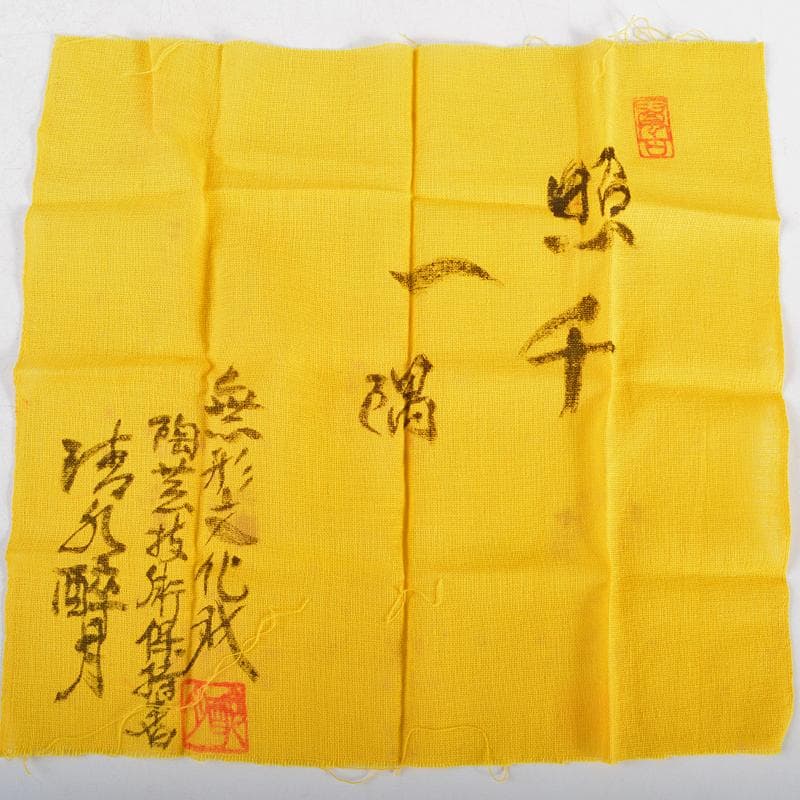 照千
一隅
無形文化財
陶芸技術保持者
清水醉月